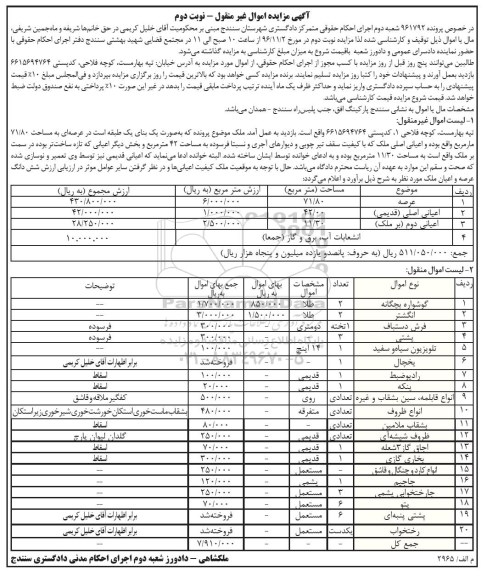 آگهی مزایده اموال غیر منقول – نوبت دوم
در خصوص پرونده ۹۶۱۷۹۲ شعبه دوم اجرای احکام حقوقی متمرکز دادگستری شهرستان سنندج مبنی بر محکومیت آقای خلیل کریمی در حق خانم‌ها شریفه و ماه‌جمین شریفی،
مال یا اموال ذیل توقیف و کارشناسی شده لذا مزایده نوبت دوم در مورخ ۹۶/۱۱/۲ از ساعت ۱۰ صبح الی ۱۱ در مجتمع قضایی شهید بهشتی سنندج دفتر اجرای احکام حقوقی با
حضور نماینده دادسرای عمومی و دادورز شعبه باقیمت شروع به میزان مبلغ کارشناسی به مزایده گذاشته می‌شود.
طالبین می‌توانند پنج روز قبل از روز مزایده با کسب مجوز از اجرای احکام حقوقی، از اموال مورد مزایده به آدرس خیابان: تپه بهارمست، کوچه فلاحی، کدپستی ۶۶۱۵۶۹۴۷۶۴
بازدید بعمل آورند و پیشنهادات خود را کتبا روز مزایده تسلیم نمایند. برنده مزایده کسی خواهد بود که بالاترین قیمت را روز برگزاری مزایده بپردازد و فی‌المجلس مبلغ ۱۰٪ قیمت
پیشنهادی را به حساب سپرده دادگستری واریز نماید و حداکثر ظرف یک ماه آینده ترتیب پرداخت مابقی قیمت را بدهد در غیر این صورت ۱۰٪ پرداختی به نفع صندوق دولت ضبط
خواهد شد. قیمت شروع مزایده قیمت کارشناسی می‌باشد.
مشخصات مال یا اموال به نشانی سنندج پارکینگ افق، جنب پلیس‌راه سنندج - همدان می‌باشد.
۱- لیست اموال غیر منقول:
تپه بهارمست، کوچه فلاحی ۱، کدپستی ۶۶۱۵۶۹۴۷۶۴ واقع است. بازدید به عمل آمد. ملک موضوع پرونده که بصورت یک بنای یک طبقه است در عرصه‌ای به مساحت ۷۱/۸۰
مترمربع واقع بوده و اعیانی اصلی ملک که با کیفیت سقف تیر چوبی و دیوارهای آجری و نسبتا فرسوده به مساحت ۴۲ مترمربع و بخش دیگر اعیانی که تازه ساخت‌تر بوده در سمت
بر ملک واقع است به مساحت ۱۱/۳۰ مترمربع بوده و به ادعای خوانده توسط ایشان ساخته شده. البته خوانده ادعا می‌نماید که اعیانی قدیمی نیز توسط وی تعمیر و نوسازی شده
که صحت و سقم این موارد به عهده آن ریاست محترم دادگاه می‌باشد. حال با توجه به موقعیت ملک کیفیت اعیانی‌ها و در نظر گرفتن سایر عوامل موثر در ارزیابی ارزش شش دانگ
عرصه و اعیان ملک مورد نظر به شرح ذیل برآورد و اعلام می‌گردد:
ردیف موضوع مساحت (متر مربع) ارزش متر مربع (به ریال) ارزش مجموع (به ریال)
۱ عرصه ۷۱/۸۰ ۶/۰۰۰/۰۰۰ ۴۳۰/۸۰۰/۰۰۰
۲ اعیانی اصلی (قدیمی) ۴۲/۰۰ ۱/۰۰۰/۰۰۰ ۴۲/۰۰۰/۰۰۰
۳ اعیانی دوم (بر ملک) ۱۱/۳۰ ۲/۵۰۰/۰۰۰ ۲۸/۲۵۰/۰۰۰
۴ انشعابات آب، برق و گاز (جمعا) ۱۰,۰۰۰,۰۰۰
جمع: ۵۱۱/۰۵۰/۰۰۰ ریال (به حروف: پانصد و یازده میلیون و پنجاه هزار ریال)
۲- لیست اموال منقول:
ردیف نوع اموال تعداد مشخصات اموال بهای اموال به ریال جمع بهای اموال به ریال توضیحات
۱ گوشواره بچگانه ۲ طلا ۸۵۰/۰۰۰ ۱/۷۰۰/۰۰۰ ---
۲ انگشتر ۲ طلا ۱/۵۰۰/۰۰۰ ۳/۰۰۰/۰۰۰ ---
۳ فرش دستباف ۱تخته دومتری - ۳۰۰/۰۰۰ فرسوده
۴ پشتی ۳ - - ۳۰۰/۰۰۰ فرسوده
۵ تلویزیون سیاه و سفید ۱ ۱۴ اینچ - ۱۰۰/۰۰۰ ---
۶ یخچال ۱ - - فروخته شد برابر اظهارات آقای خلیل کریمی
۷ رادیو ضبط ۱ قدیمی - ۱۰۰/۰۰۰ اسقاط
۸ پنکه ۱ قدیمی - ۲۰/۰۰۰ اسقاط
۹ انواع قابلمه، سین بشقاب و غیره تعدادی روی - ۵۰۰/۰۰۰ کفگیر ملاقه و قاشق
۱۰ انواع ظروف تعدادی متفرقه - ۴۸۰/۰۰۰ بشقاب ماست‌خوری استکان خورشت‌خوری شیرخوری زیراستکان
۱۱ بشقاب ملامین تعدادی - - ۸۰/۰۰۰ اسقاط
۱۲ ظروف شیشه‌ای تعدادی قدیمی - ۲۵۰/۰۰۰ گلدان لیوان پارچ
۱۳ اجاق گاز ۳شعله ۱ قدیمی - ۷۰/۰۰۰ اسقاط
۱۴ بخاری گازی ۱ قدیمی - ۳۰۰/۰۰۰ اسقاط
۱۵ انواع کارد و چنگال و قاشق - مستعمل - ۲۵۰/۰۰۰ ---
۱۶ جاجیم ۱ پشمی - ۱۲۰/۰۰۰ ---
۱۷ جارختخوابی پشمی ۳ مستعمل - ۲۵۰/۰۰۰ ---
۱۸ پتو ۶ مستعمل - ۷۰/۰۰۰ ---
۱۹ پشتی پنبه‌ای ۶ مستعمل - فروخته شد برابر اظهارات آقای خلیل کریمی
۲۰ رختخواب یکدست مستعمل - فروخته شد برابر اظهارات آقای خلیل کریمی
--- جمع کل - - - ۷/۹۱۰/۰۰۰ ---
م الف/ ۲۹۶۵ ملکشاهی – دادورز شعبه دوم اجرای احکام مدنی دادگستری سنندج